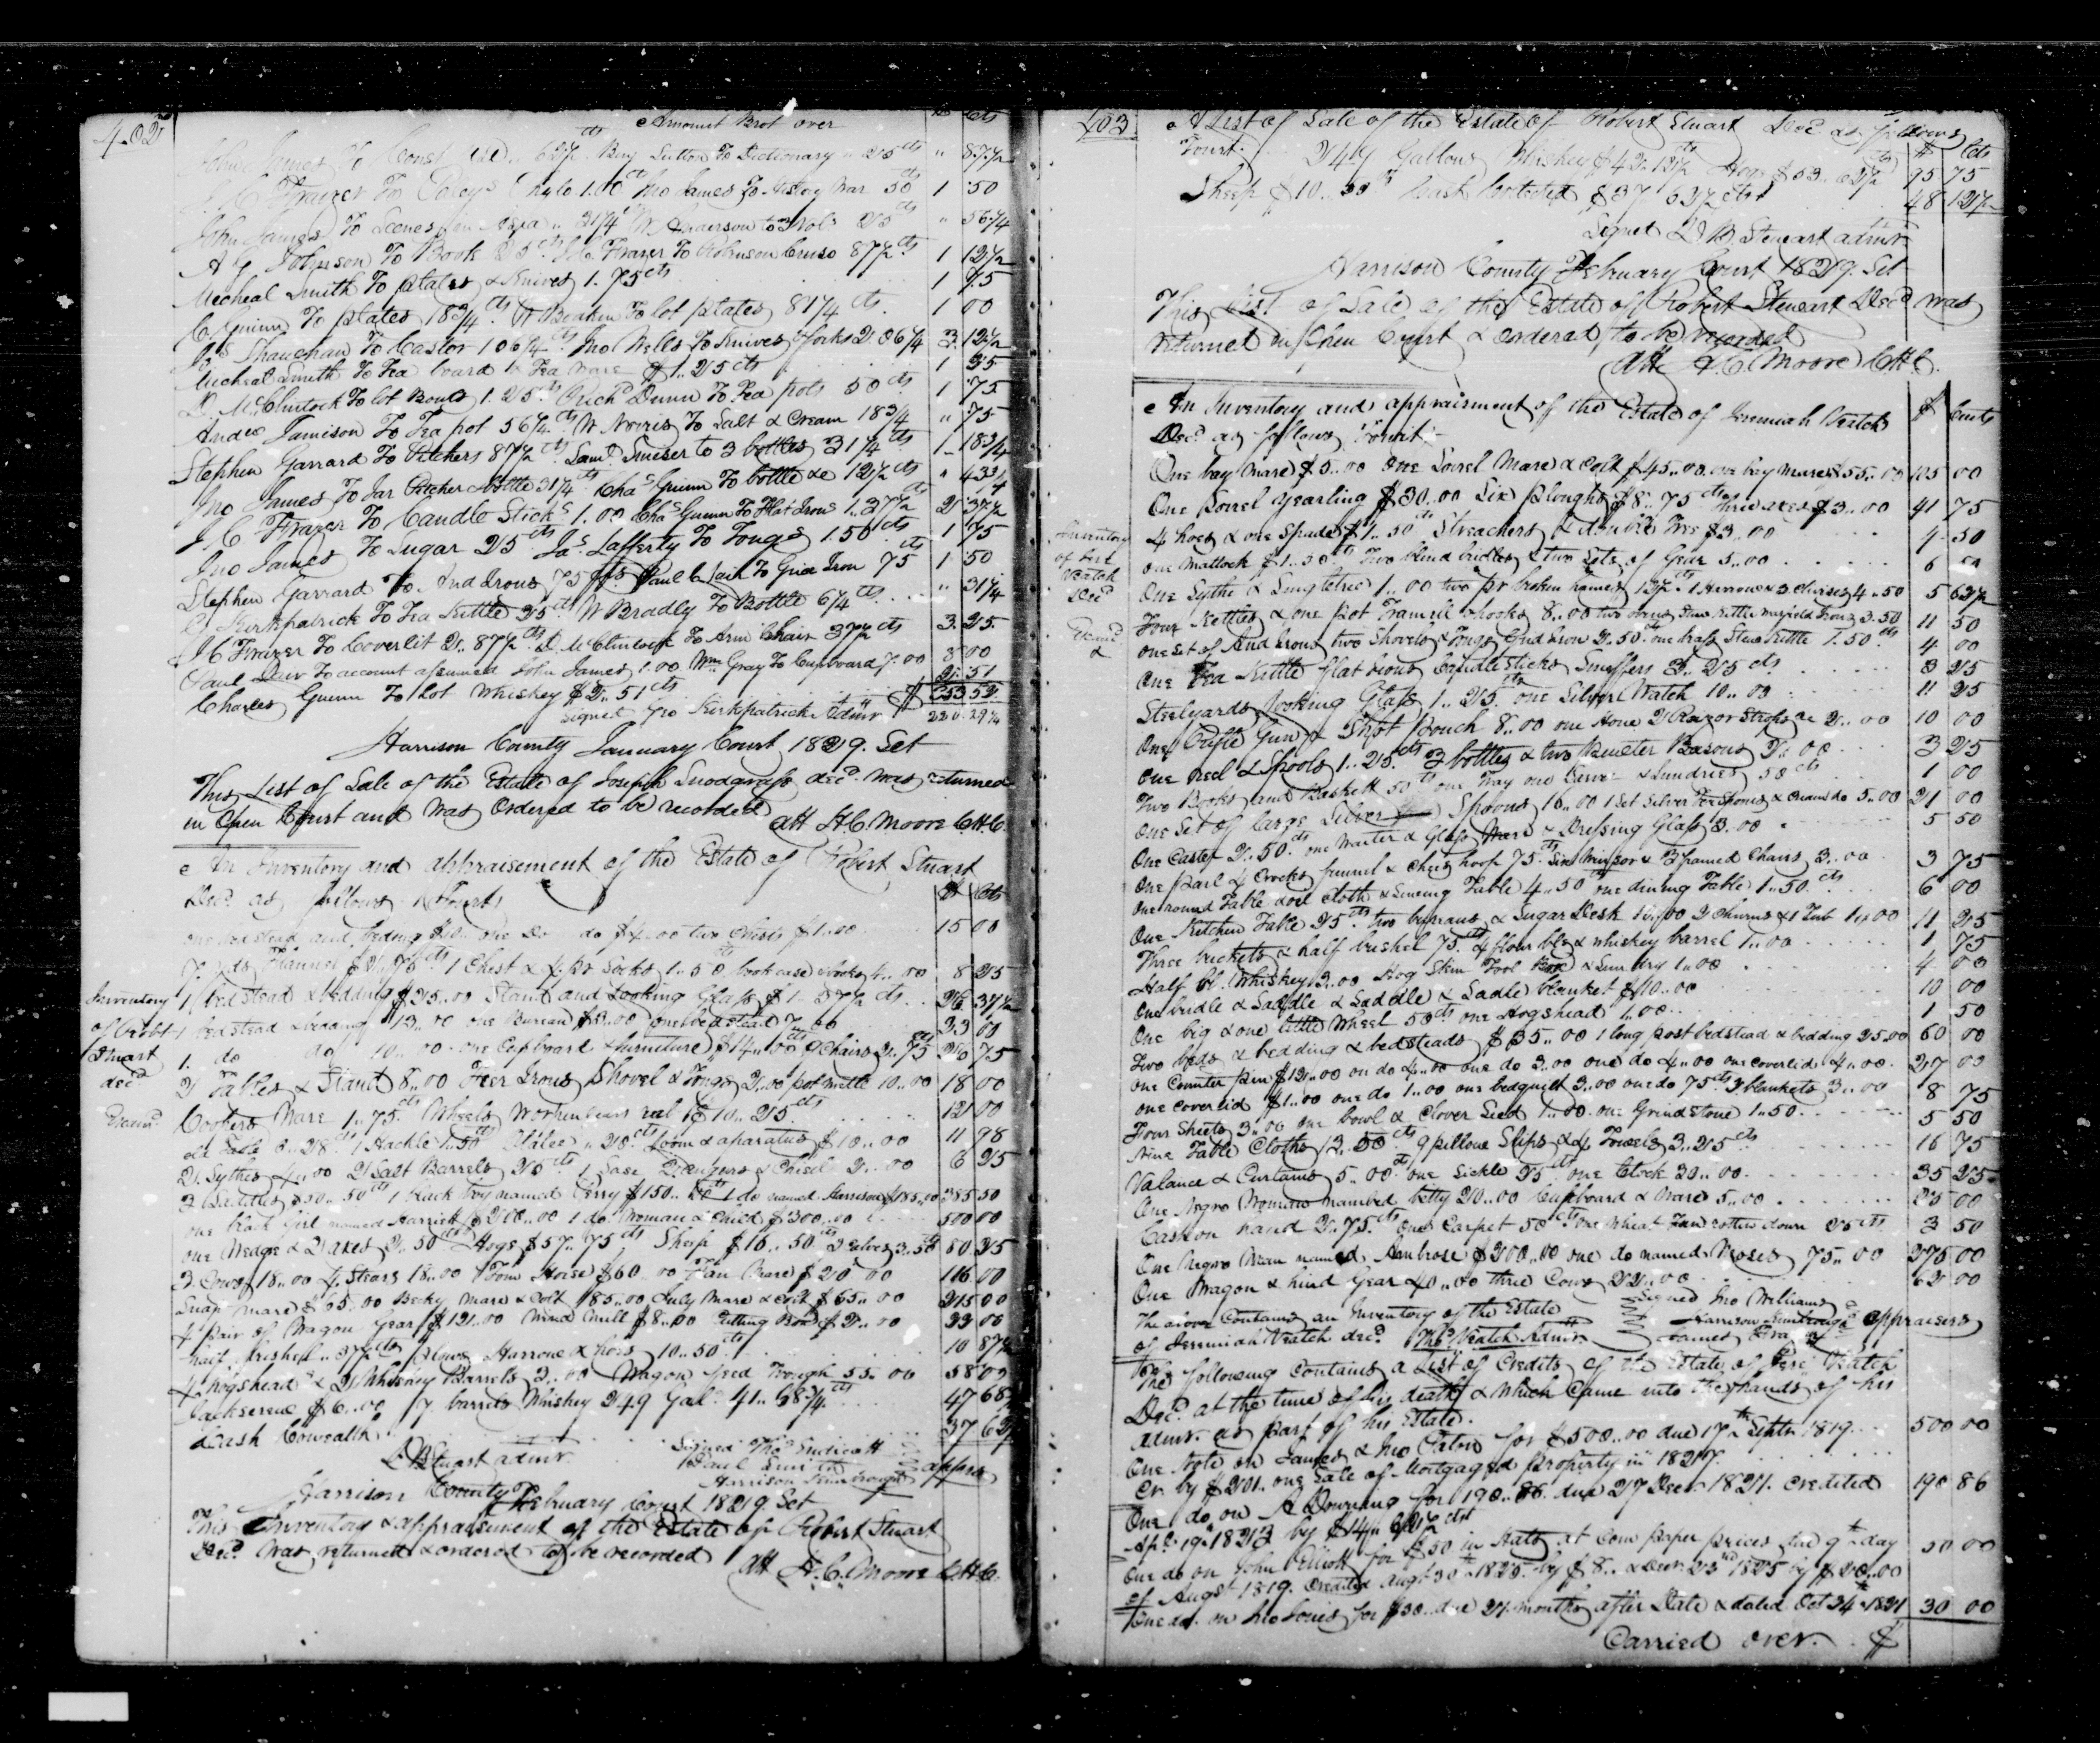 402
Amount Brot over
John James To Const 62 1/2 Benj Sutton To Dictionary 25 cts " 87 1/2
J C Frazer To Paleys 1.00 Jno James To War 50 cts 1 50
John James To Scenes in Asia " 31 1/4 W Anderson to 3 Vols 25 cts " 56 1/4
A G Johnson To Book 25 cts J C Frazer To Robinson Cruso 87 1/2 cts 1 12 1/2
Micheal Smith To plates & Knives 1.75 cts 1 75
C Guinn To plates 18 3/4 cts To lot plates 81 1/4 cts 1 00
To Castor 1 06 1/4 cts Jno Wells To Knives & forks 2 06 1/4 3 12 1/2
Micheal Smith To Tea board & Tea ware $1.25 cts 1 25
D. McClintock To lot Bowls 1.25 cts Richd Dunn To Tea pots 50 cts 1 75
Andw Jamison To Tea pot 56 1/4 cts W Norris To Salt & Cream 18 3/4 " 75
Stephen Garrard To Pitchers 87 1/2 cts Saml Smiser to 3 bottles 31 1/4 cts 1 18 3/4
Jno James To Jar Pitcher & bottle 31 1/4 cts Chas Guinn To bottle &c 12 1/2 cts " 43 3/4
J C Frazer To Candle Sticks 1.00 Chas Guinn To Flat Irons 1.37 1/2 cts 2 37 1/2
Jno James To Sugar 25 cts Jas Lafferty To Tongs 1.50 cts 1 75
Stephen Garrard To And Irons 75 cts Paul Lair To Grid Iron 75 1 50
Kirkpatrick To Tea Kettle 25 cts W Bradly To Bottle 6 1/4 cts " 31 1/4
J C Frazer To Coverlit 2.87 1/2 cts D. McClintock To Arm Chair 37 1/2 cts 3 25
Paul Lair To account assumed John James 1.00 Wm Gray To Cupboard 7.00 8 00
Charles Guinn To lot Whiskey $2.51 cts 2 51
Signed Jno Kirkpatrick Admr $
Harrison County January Court 1829. Sct
This List of Sale of the Estate of Joseph Snodgrass decd was returned
in Open Court and was Ordered to be recorded
att H.C. Moore CHC
An Inventory and appraisement of the Estate of Robert Stuart
Decd as follows Towit $ Cts
one bed stead and beding $10.. one Do do $4..00 two Chists $1..00 15 00
7 yds Flannel $2.75 cts 1 Chest & 4 pr Socks 1..50 cts book case & books 4..00 8 25
Inventory 1 bed stead & bedding $25..00 Stand and Looking Glass $1..37 1/2 cts 26 37 1/2
of Robt 1 bed stead & bedding 13..00 one Bureau $ ..00 one bedstead 7..00 33 00
Stuart 1. do do 10..00 one Cupboard & furniture $14..00 cts 9 Chairs 2..75 cts 26 75
decd 2 Tables & Stand 8..00 Fier Irons Shovel & Tongs 2..00 pot mettle 10..00 18 00
Examd Coopers Ware 1..75 cts Wheels reel 10..25 cts 12 00
1 Hackle 1.50 cts Loom & aparatus $10..00 11 98
2 Sythes 4..00 2 Salt Barrels 25 cts 1 Saw 2 augers & Chisel 2..00 6 25
3 50..50 cts 1 black boy named Perry $150..00 cts 1 do named Harrison $185..00 385 50
one black Girl named Harriett $200..00 1 do Woman & Child $300..00 500 00
one Wedge & 2 axes 2..50 cts Hogs $57..75 cts Sheep $16..50 cts 3..50 80 25
2 Cows 18..00 4 Stears 18..00 1 Tom Horse $60..00 Fan Mare $20..00 116 00
Snap mare $65..00 Becky mare & colt $85..00 July Mare & colt $65..00 215 00
4 pair of Wagon Gear $12..00 Wind Mill $8..00 Cutting Box $2..00 22 00
half bushel..37 1/2 cts plows Harrow & hoes 10..50 cts 10 87 1/2
4 hogsheads & 2 Whiskey Barrels 3..00 Wagon feed Trough 55..00 58 00
Jackscrew $6..00 7 barrels Whiskey 249 Gals 41..68 3/4 cts 47 68 3/4
Cash Cowealth 37 62 1/2
D B Stuart admr Signed Thos Endicott
Paul Smith
Harrison apprs
Harrison County February Court 1829. Sct
This Inventory & appraisement of the Estate of Robert Stuart
Decd was returned & ordered to be recorded
att H.C. Moore CHC.
403
A List of Sale of the Estate of Robert Stuart Decd as follows
Towit. 249 Gallons Whiskey $42..12 1/2 cts Hogs $53..62 1/2 cts 95 75
Sheep $10..50 cts Cash Collected $37 62 1/2 cts 48 12 1/2
Signed D B. Stewart admr
Harrison County February Court 1829. Sct
This List of Sale of the Estate of Robert Stewart Decd was
returned in Open Court & ordered to be recorded
Att H.C. Moore CHC.
An Inventory and appraisment of the Estate of Jeremiah Veatch $ Cents
Decd as follows Towit
One bay Mare $5..00 One Sorrel Mare & Colt $45..00 one bay mare $55..00 105 00
One Sorrel yearling $30..00 Six Ploughs $8..75 cts three axes $3..00 41 75
Inventory 4 hoes & one Spade $1..50 cts Streachers & double trees $3..00 4 50
of Jere one Mattock $1..50 cts Two blind bridles & two Sets of Gear 5..00 6 50
Veatch One Sythe & Singletree 1..00 two pr broken hames 12 1/2 cts 1 Harrow & 3 Clivises 4..50 5 62 1/2
Decd Four Kettles & one pot Tramell & hooks 8..00 two ovens Stew kettle 3.50 11 50
Examd one set of And Irons two Shovels & Tongs Grid Iron 2.50 cts one brass Stew Kettle 1.50 cts 4 00
One Tea Kettle flat irons Candlesticks Snuffers 3..25 cts 3 25
Steelyards looking Glass 1..25 cts one Silver Watch 10..00 11 25
One Rifle Gun & Shot Pouch 8..00 one Hone 2 Razor Strops &c 2..00 10 00
one reel & Spools 1..25 cts 3 bottles & two Pewter Basons 2..00 3 25
Two Books and Baskett 50 cts one Tray one & Sundries 50 cts 1 00
One Set of large Silver Spoons 16..00 1 Set Silver Tea Spoons & Cream do 5..00 21 00
One Caster 2..50 cts one Waiter & Glass Ware & Dressing Glass 3.00 5 50
One Parl 4 Crocks funnel & Chees hoop 75 cts Six Winsor & 3 framed Chairs 3..00 3 75
One round Table & oil cloth & Sewing Table 4..50 cts one dining Table 1..50 cts 6 00
One Kitchen Table 25 cts two bureaus & Sugar Desk 10..00 2 Churns & 1 Tub 1..00 11 25
Three buckets & half bushel 75 cts 4 flour bls & whiskey barrel 1..00 1 75
Half bl Whiskey 3..00 Hog Skin Tool Box & Sundry 1..00 4 00
One bridle & Saddle & Saddle & Sadle blanket $10..00 10 00
One big & one little Wheel 50 cts one Hogshead 1..00 1 50
Two beds & bedding & bedsteads $35..00 1 long post bedstead & bedding 25.00 60 00
one Counter pin $12..00 on do 4..00 one do 3.00 one do 4..00 one coverlid 4..00 27 00
one coverlid $1..00 one do 1..00 one bedquilt 3..00 one do 75 cts 3 blankets 3..00 8 75
Four Sheets 3..00 one bowl & Clover Seed 1..00 one Grind stone 1..50 5 50
Nine Table Cloths 13..50 cts 9 pillow Slips & 4 Towels 3..25 cts 16 75
Valance & Curtains 5..00 cts one Sickle 25 cts one Clock 30..00 35 25
One Negro Woman named betty 20..00 Cupboard & Ware 5..00 25 00
Cash on hand 2..75 cts One Carpet 50 cts one Wheat Fan 25 cts 3 50
One Negro Man named Ambrose $200..00 one do named Moses 75..00 275 00
One Wagon & hind Gear 40..00 three Cows 22..00 62 00
The above Contains an Inventory of the Estate Signed Jno Williams
of Jeremiah Veatch decd Thos Veatch Admr Harrison appraisers
James
The following Contains a List of Credits of the Estate of Jere Veatch
Decd at the time of his death & which came into the hands of his
admr. as part of his Estate.
One Note on James & Jno Eaton for $500..00 due 17th Septr 1819 500 00
Cr. by $201.. one Sale of Mortgaged Property in 1827.
One do on A Downing for 190..86 due 27 Decr 1821. credited 190 86
Apl. 19th 1823 by $14..62 1/2 cts
One do on John Elliott for $50 in Hats at Com paper prices due 9th day 50 00
of Augst 1819. Credited Augt 30th 1823. by $8.. & Decr. 23rd 1825 by $20..00
One do. on Jno Jones for $30.. due 21 months after Date & dated Oct 24th 1821 30 00
Carried over. $